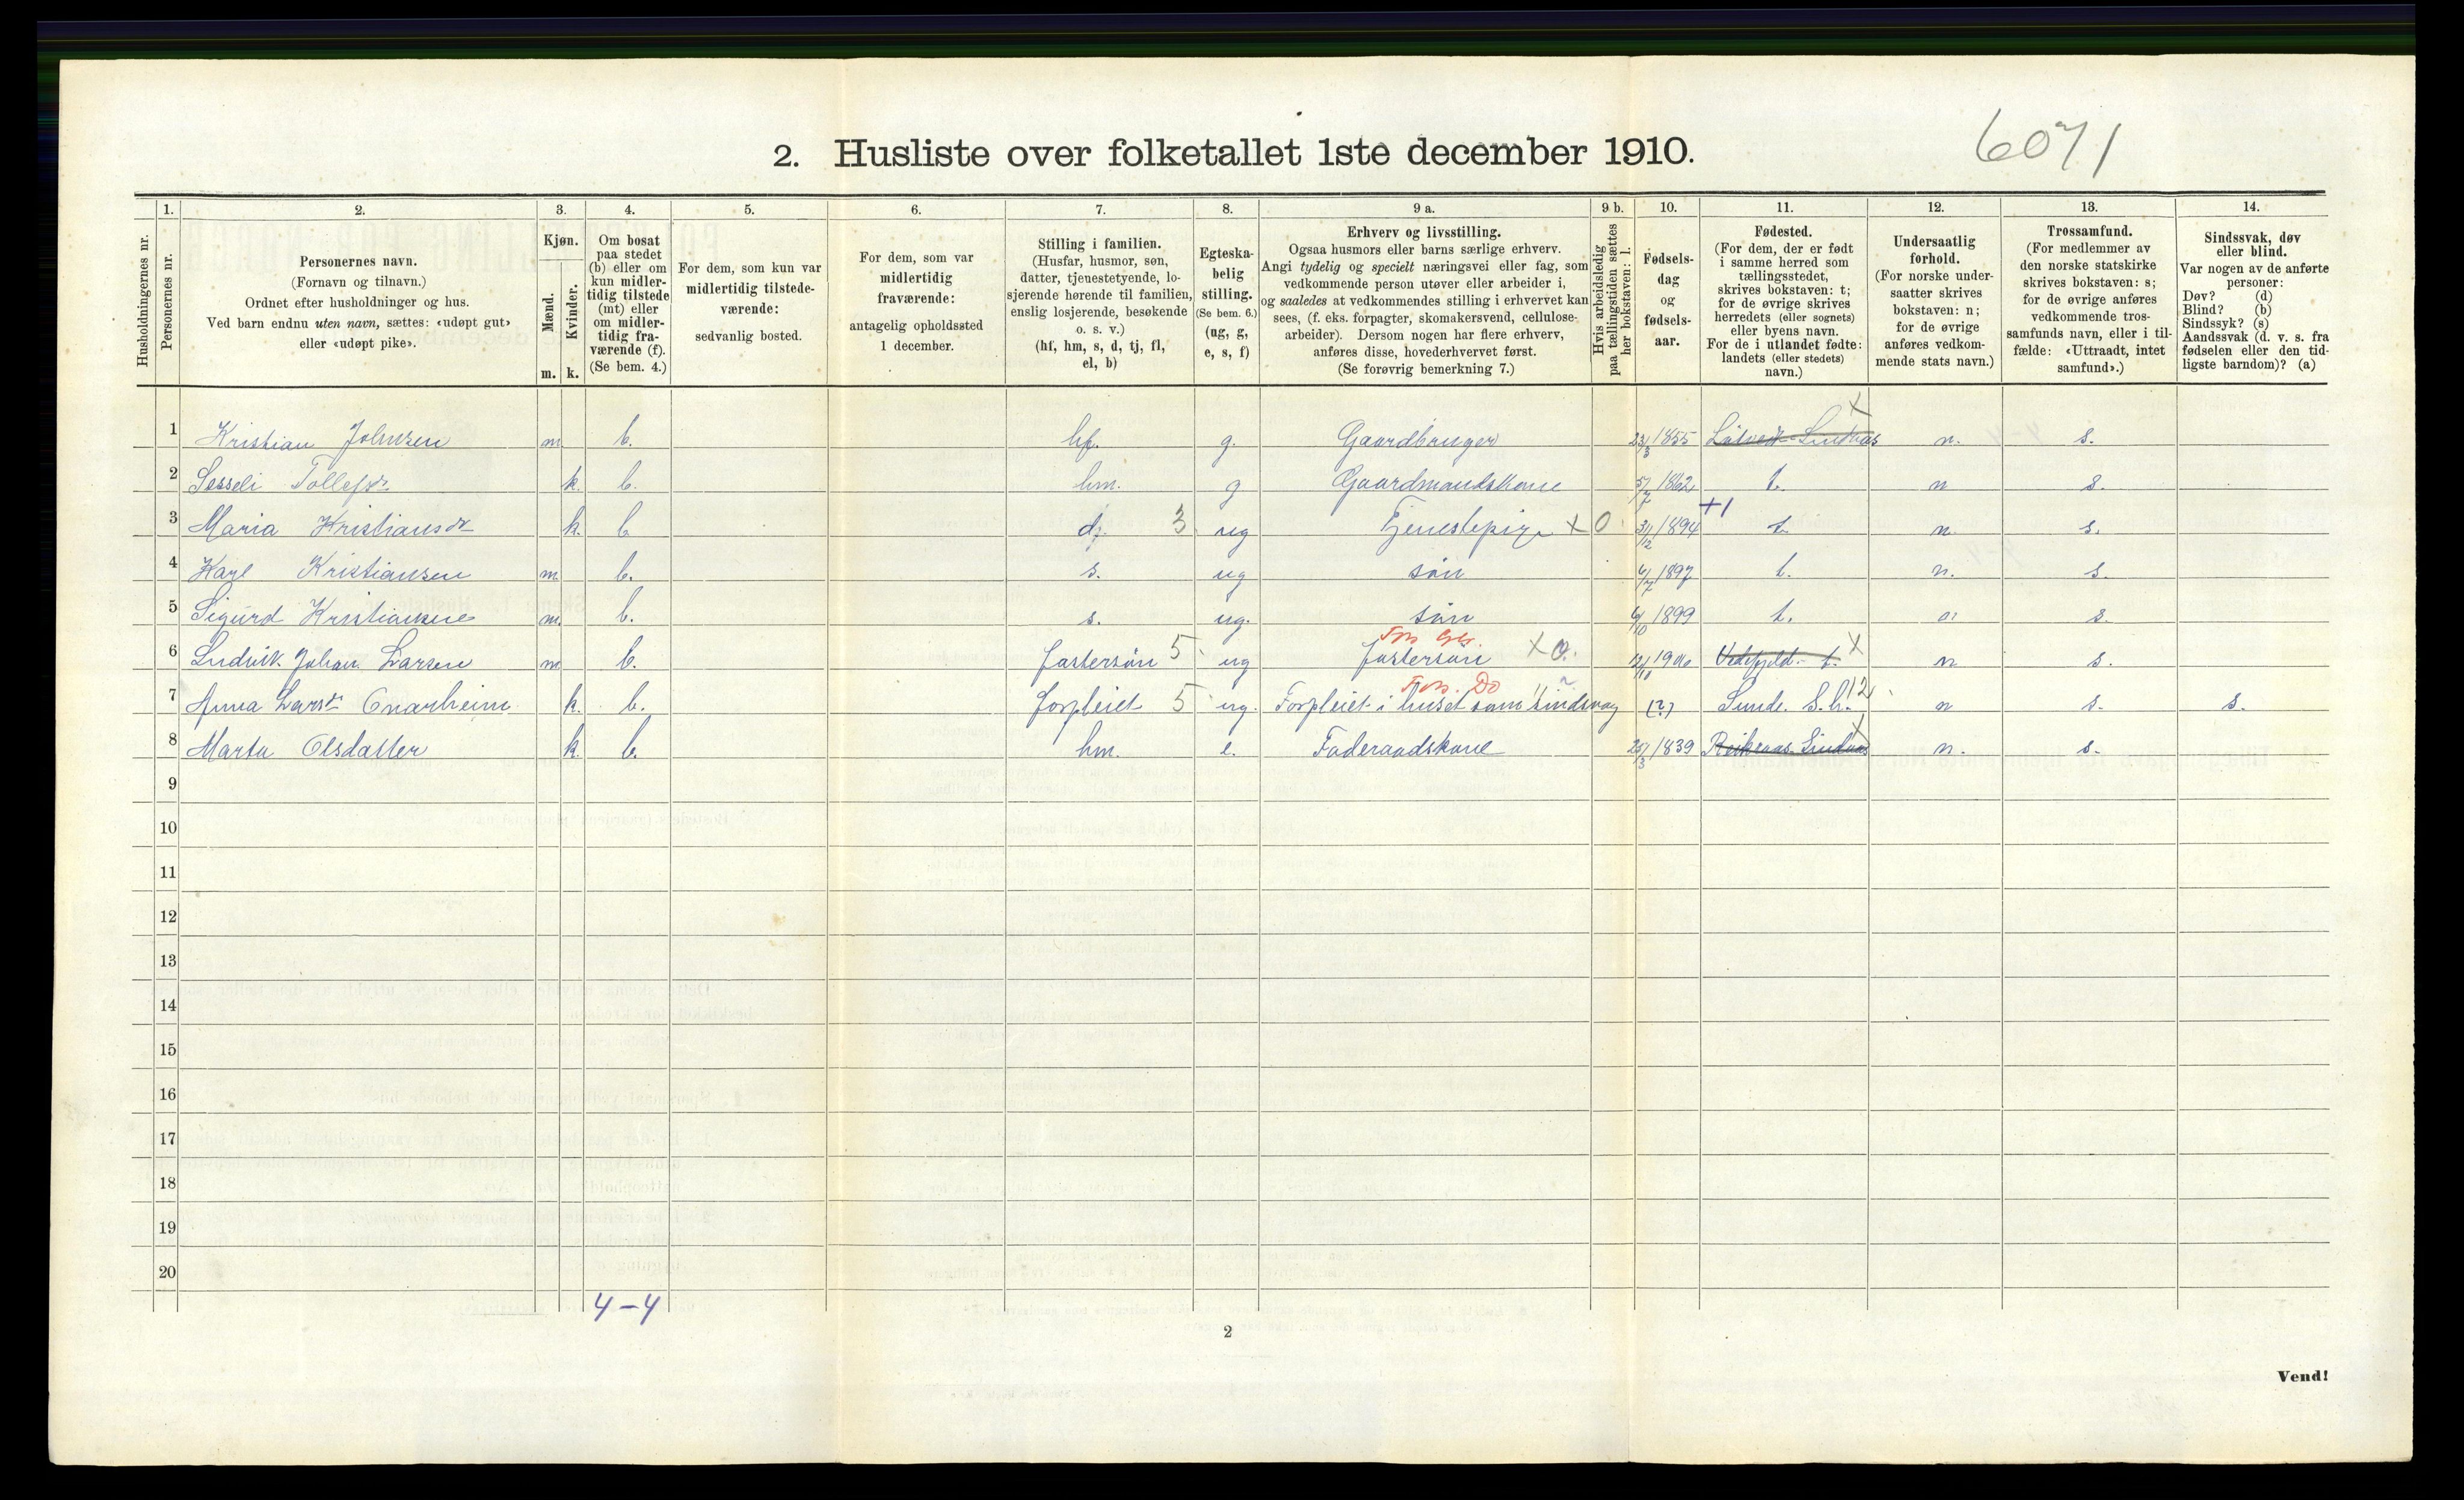 6071
2. Husliste over folketallet 1ste december 1910.
Husholdningernes nr.
1. Personernes nr.
2. Personernes navn.
(Fornavn og tilnavn.)
Ordnet efter husholdninger og hus.
Ved barn endnu uten navn, sættes: «udøpt gut»
eller «udøpt pike».
3. Kjøn.
Mænd. Kvinder.
m. k.
4. Om bosat
paa stedet
(b) eller om
kun midler-
tidig tilstede
(mt) eller
om midler-
tidig fra-
værende (f).
(Se bem. 4.)
5. For dem, som kun var
midlertidig tilstede-
værende:
sedvanlig bosted.
6. For dem, som var
midlertidig
fraværende:
antagelig opholdssted
1 december.
7. Stilling i familien.
(Husfar, husmor, søn,
datter, tjenestetyende, lo-
sjerende hørende til familien,
enslig losjerende, besøkende
o. s. v.)
(hf, hm, s, d, tj, fl,
el, b)
8. Egteska-
belig
stilling.
(Se bem. 6.)
(ug, g,
e, s, f)
9 a. Erhverv og livsstilling.
Ogsaa husmors eller barns særlige erhverv.
Angi tydelig og specielt næringsvei eller fag, som
vedkommende person utøver eller arbeider i,
og saaledes at vedkommendes stilling i erhvervet kan
sees, (f. eks. forpagter, skomakersvend, cellulose-
arbeider). Dersom nogen har flere erhverv,
anføres disse, hovederhvervet først.
(Se forøvrig bemerkning 7.)
9 b. Hvis arbeidsledig
paa tællingstiden sættes
her bokstaven: l.
10. Fødsels-
dag
og
fødsels-
aar.
11. Fødested.
(For dem, der er født
i samme herred som
tællingsstedet,
skrives bokstaven: t;
for de øvrige skrives
herredets (eller sognets)
eller byens navn.
For de i utlandet fødte:
landets (eller stedets)
navn.)
12. Undersaatlig
forhold.
(For norske under-
saatter skrives
bokstaven: n;
for de øvrige
anføres vedkom-
mende stats navn.)
13. Trossamfund.
(For medlemmer av
den norske statskirke
skrives bokstaven: s;
for de øvrige anføres
vedkommende tros-
samfunds navn, eller i til-
fælde: «Uttraadt, intet
samfund».)
14. Sindssvak, døv
eller blind.
Var nogen av de anførte
personer:
Døv? (d)
Blind? (b)
Sindssyk? (s)
Aandssvak (d. v. s. fra
fødselen eller den tid-
ligste barndom)? (a)
1 Kristian Johnsen m b. hf. g. Gaardbruger 23/3 1855 Lindaas x n. s.
2 Sesseli Tollefsdr k. b. hm. g Gaardmandskone 5/7 1862 t. n s.
3 Maria Kristiansdr k. b d tj. 3 ug Tjenestepige x 0 31/12 1894 +1 t. n. s.
4 Karl Kristiansen m b. s. ug søn 4/7 1897 t. n. s.
5 Sigurd Kristiansen m. b. s. ug. søn 6/10 1899 t. n s.
6 Ludvik Johan Larsen m b. fostersøn 5 ug fostersøn x 0. 1900 t. x n s.
7 Anna Larsdr Onarheim k. b. forpleiet 5 ug. Forpleiet i huset som sindsvag (?) Sunde S.h. 12 n s. s.
8 Marta Olsdatter k b. hm. e. Føderaadskone 25/3 1839 Lindaas x n. s.
9
10
11
12
13
14
15
16
17
18
19
20
4-4
2
Vend!